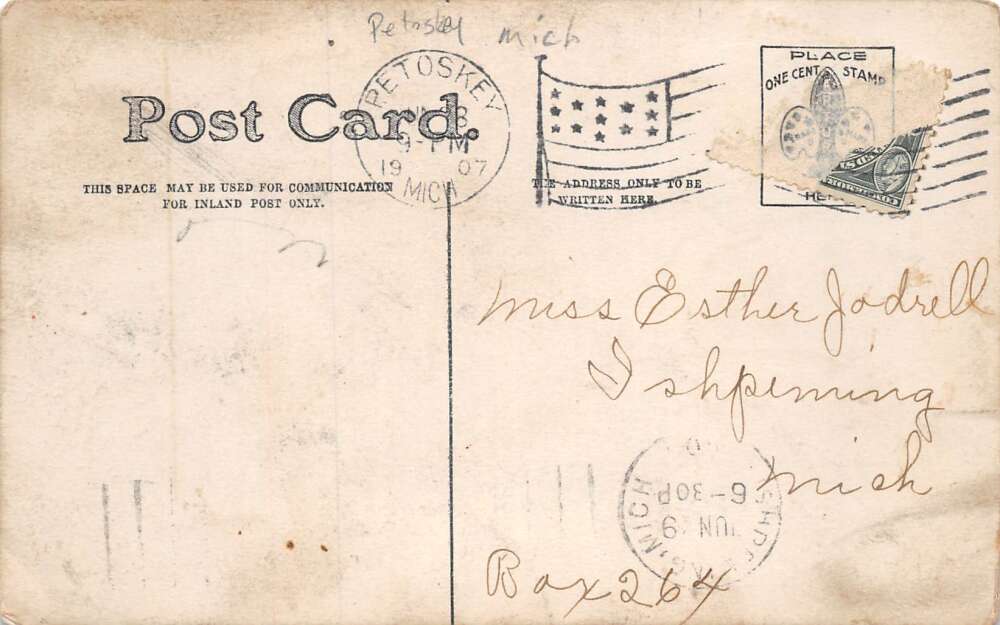 Petoskey Mich
PETOSKEY
9-PM
1907
MICH
Post Card.
THIS SPACE MAY BE USED FOR COMMUNICATION
FOR INLAND POST ONLY.
THE ADDRESS ONLY TO BE
WRITTEN HERE.
PLACE
ONE CENT STAMP
Miss Esther Jodrell
Ishpeming
Mich
MICH
JUN 9
6-30P
Box 264